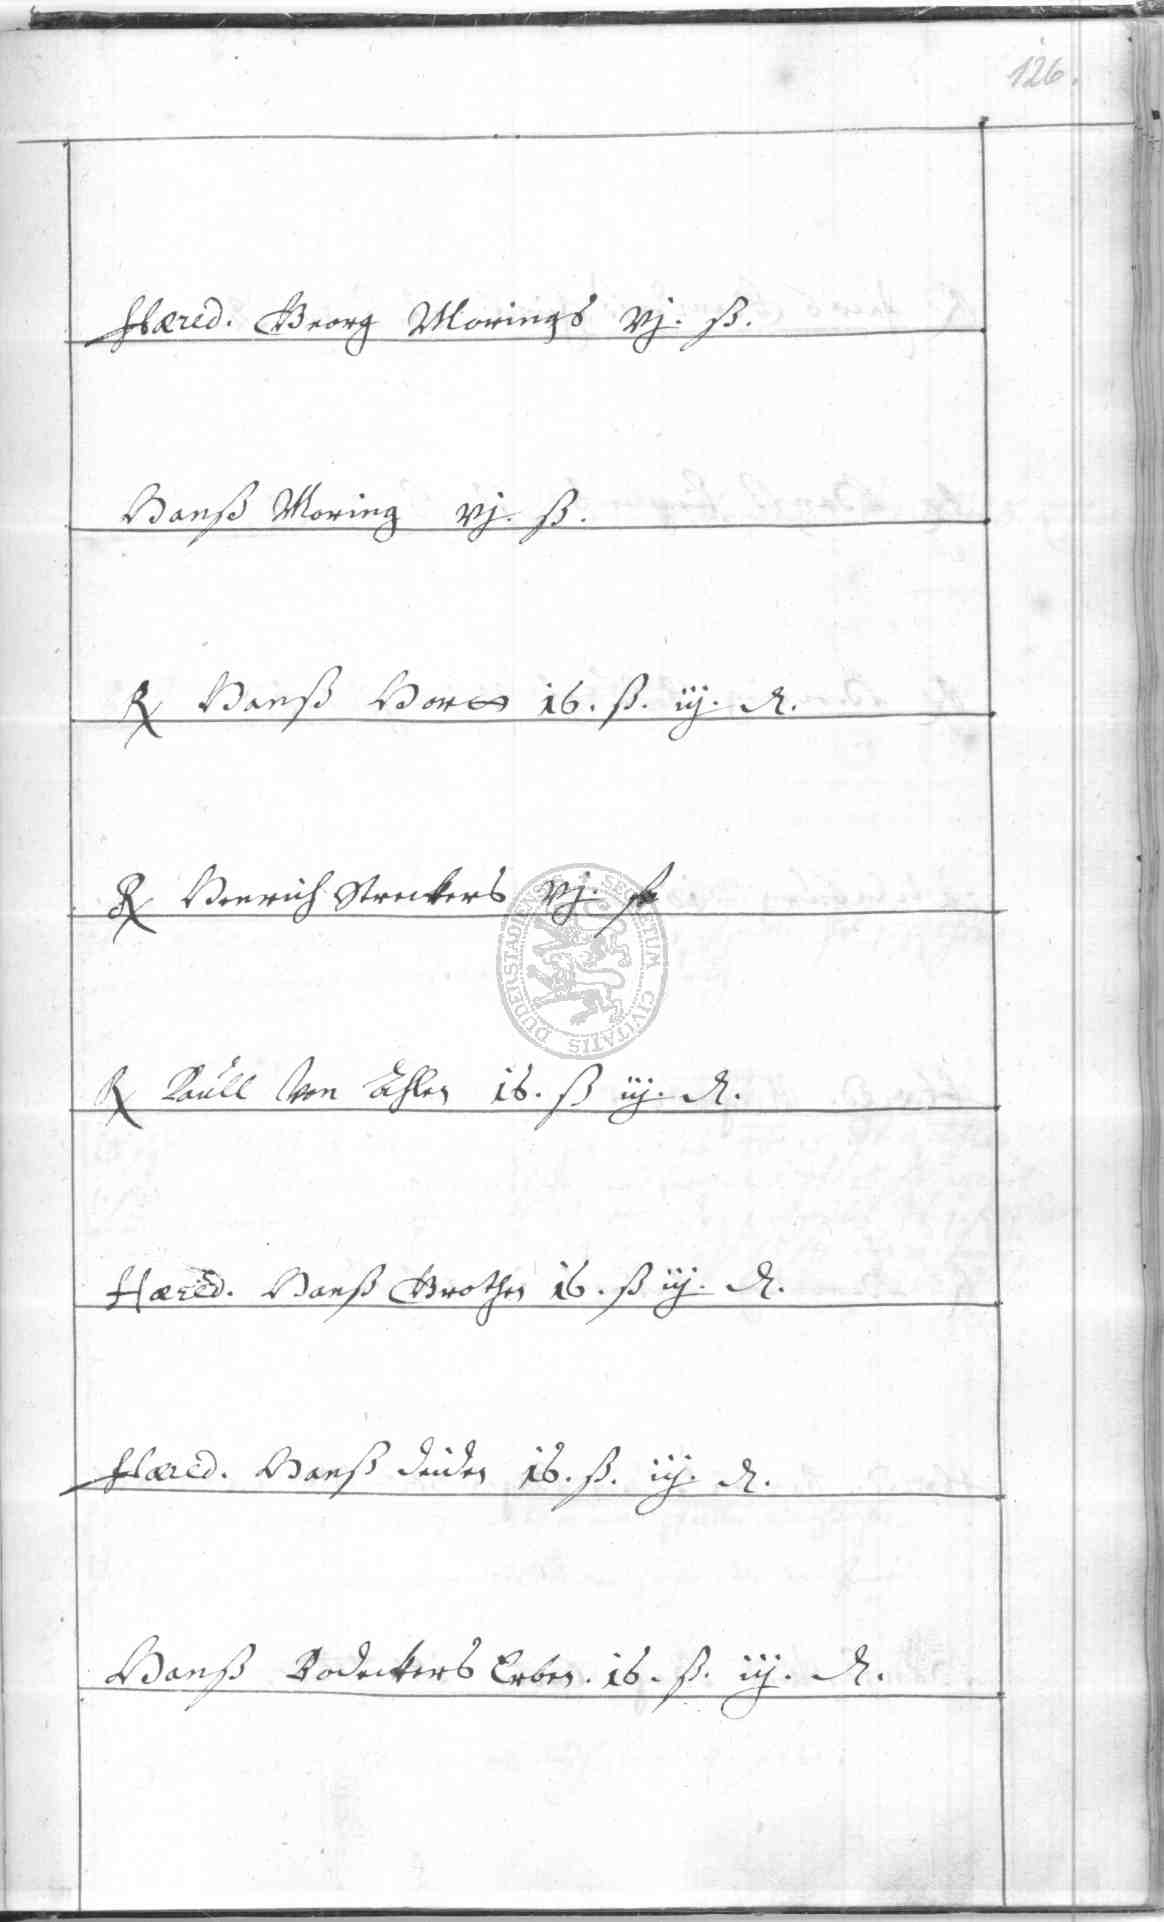 126.
Hæred. Georg Morings vj. ß.
Hanß Moring vj. ß.
R Hanß 16. ß. iij. d.
R Henrich Streckers vj. ß
R Paull Von Uhlen 16. ß iij. d.
Hæred. Hanß Grothen 16. ß iij. d.
Hæred. Hanß 16. ß. iij. d.
Hanß Bodeckers Erben. 16. ß. iij. d.
SECRETUM CIVITATIS DUDERSTADIENSIS